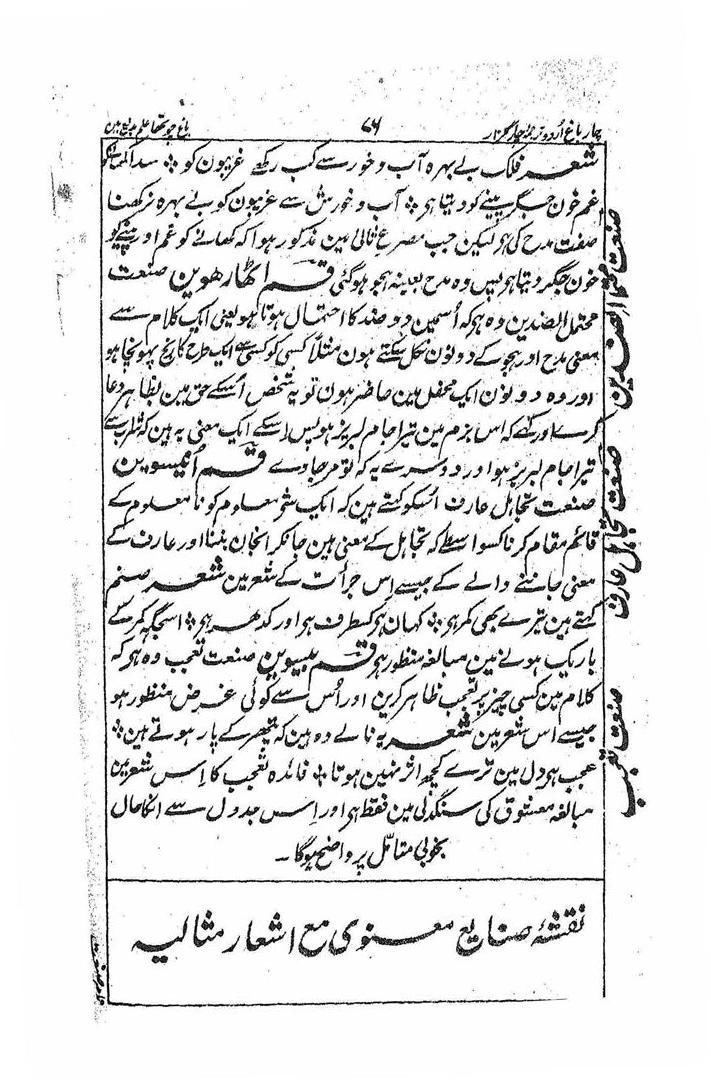 چار باغ اُردو ترجمۂ چار گلزار
۷۶
باغ چوتھا علم بدیع مین
شعر فلک بے بہرہ آب و خور سے کب رکھے غریبون کو ؞ سدا
غم خون جگر پینے کو دیتا ہو ؞ آب و خورش سے غریبون کو بے بہرہ نرکھنا
صفت مدح کی ہو لیکن جب مصرع ثانی مین مذکور ہوا کہ کھانے کو غم اور پینے کو
خون جگر دیتا ہو پس وہ مدح بعینہ ہجو ہوگئی قسم اٹھارھوین صنعت
محتمل الضدین وہ ہو کہ اُسمین دو ضد کا احتمال ہوتا ہو یعنی ایک کلام سے
معنی مدح اور ہجو کے دونون نکل سکتے ہون مثلاً کسی کو کسی سے ایک طرح کا رنج پہونچا ہو
اور وہ دونون ایک محفل مین حاضر ہون تو یہ شخص اُسکے حق مین بظاہر دعا
کرے اور کہے کہ اس بزم مین تیرا جام لبریز ہو پس اسکے ایک معنی یہ ہین کہ شراب سے
تیرا جام لبریز ہو اور دوسرے یہ کہ تو مرجاوے قسم اُنیسوین
صنعت تجاہل عارف اُسکو کہتے ہین کہ ایک شی معلوم کو نامعلوم کے
قائم مقام کرنا کسواسطے کہ تجاہل کے معنی ہین جانکر انجان بننا اور عارف کے
معنی جاننے والے کے جیسے اس جرأت کے شعر مین شعر صنم
کہتے ہین تیرے بھی کمر ہو ؞ کہان ہو کسطرف ہو اور کدھر ہو ؞ اسجگہ کمر کے
باریک ہونے مین مبالغہ منظور ہو قسم بیسوین صنعت تعجب وہ ہو کہ
کلام مین کسی چیز پر تعجب ظاہر کرین اور اُس سے کوئی غرض منظور ہو
جیسے اس شعر مین شعر یہ نالے وہ ہین کہ پتھر کے پار ہوتے ہین ؞
عجب ہو دل مین ترے کچھ اثر نہین ہوتا ؞ فائدہ تعجب کا اِس شعر مین
مبالغہ معشوق کی سنگدلی مین فقط ہو اور اِس جدول سے انکا حال
بخوبی متامل پر واضح ہوگا ۔
صنعت محتمل الضدین
صنعت تجاہل عارف
صنعت تعجب
نقشۂ صنایع معنوی مع اشعار مثالیہ